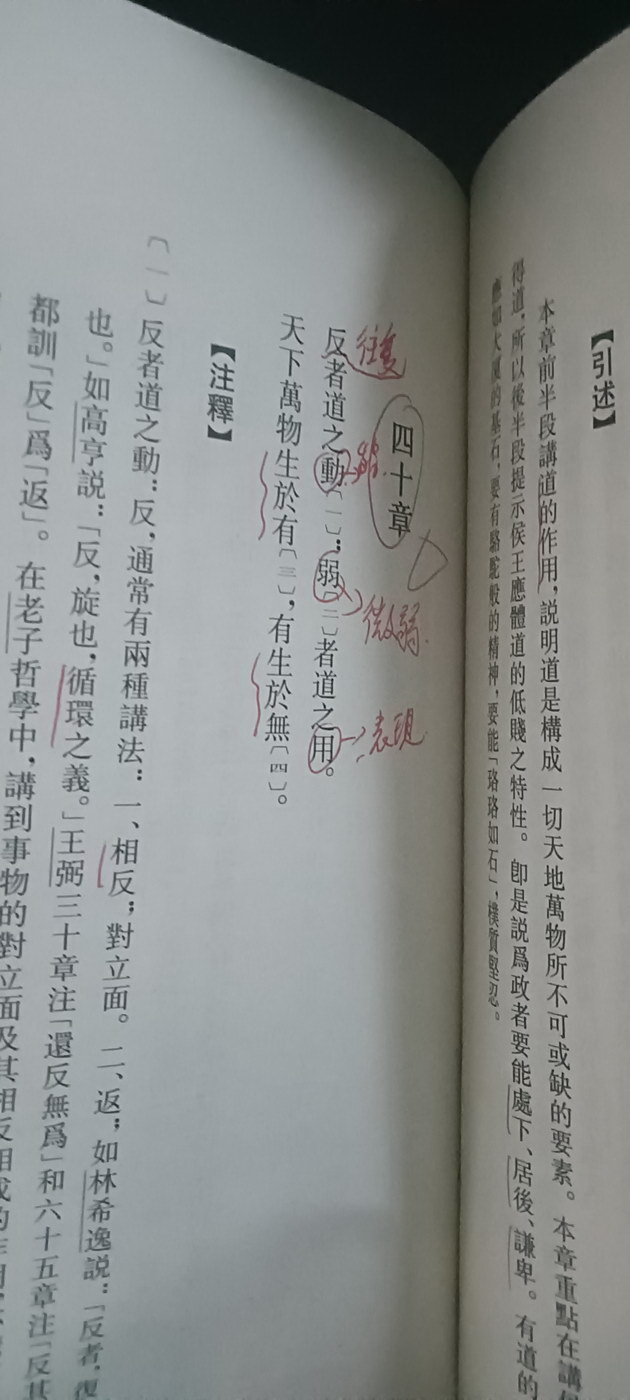 【引述】
本章前半段講道的作用，説明道是構成一切天地萬物所不可或缺的要素。本章重點在講
得道，所以後半段提示侯王應體道的低賤之特性。卽是説爲政者要能處下、居後、謙卑。有道的
應如大厦的基石，要有駱駝般的精神，要能「珞珞如石」，樸質堅忍。
四十章
往復
反者道之動〔一〕；弱〔二〕者道之用。
微弱
表現
天下萬物生於有〔三〕，有生於無〔四〕。
【注釋】
〔一〕反者道之動：反，通常有兩種講法：一、相反；對立面。二、返；如林希逸説：「反者，復
也。」如高亨説：「反，旋也，循環之義。」王弼三十章注「還反無爲」和六十五章注「反其
都訓「反」爲「返」。在老子哲學中，講到事物的對立面及其相反相成的作用，